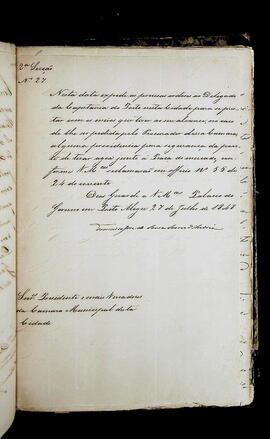 2ª Secção
Nº 27
Nesta data expeço as precisas ordens ao Delegado
da Capitania do Porto nesta Cidade para
com os meios que tiver ao seu alcance, no caso
de lhe ser pedida pelo Procurador dessa Camara,
alguma providencia para segurança da
de junto á Praia do mercado,
VMces reclamarão em officio Nº 55 de
24 do corrente.
Deos Guarde a VMces Palacio do
Governo em Porto Alegre 27 de Julho de 1848
Senrs. Presidente e mais Vereadores
da Camara Municipal desta
Cidade